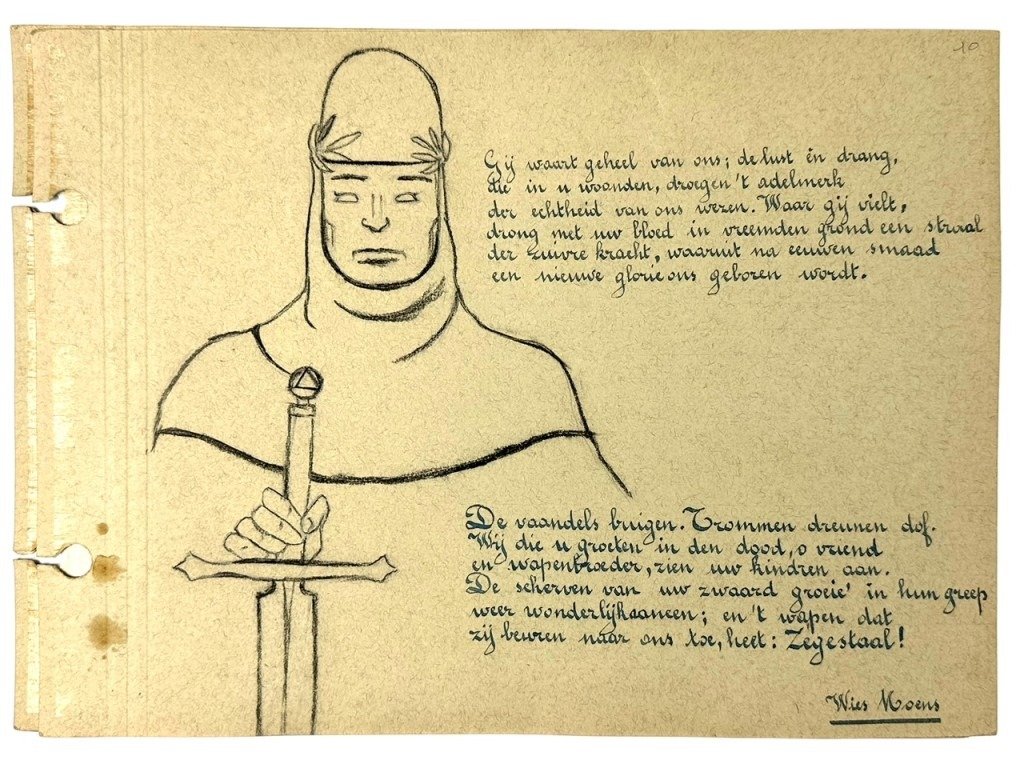 10
Gij waart geheel van ons; de lust èn drang,
die in u woonden, droegen 't adelmerk
der echtheid van ons wezen. Waar gij vielt,
drong met uw bloed in vreemden grond een straal
der zuivre kracht, waaruit na eeuwen smaad
een nieuwe glorie ons geboren wordt.
De vaandels buigen. Trommen dreunen dof.
Wij die u groeten in den dood, o vriend
en wapenbroeder, zien uw kindren aan.
De scherven van uw zwaard groeie' in hun greep
weer wonderlijk aaneen; en 't wapen dat
zij beuren naar ons toe, heet: Zegestaal!
Wies Moens